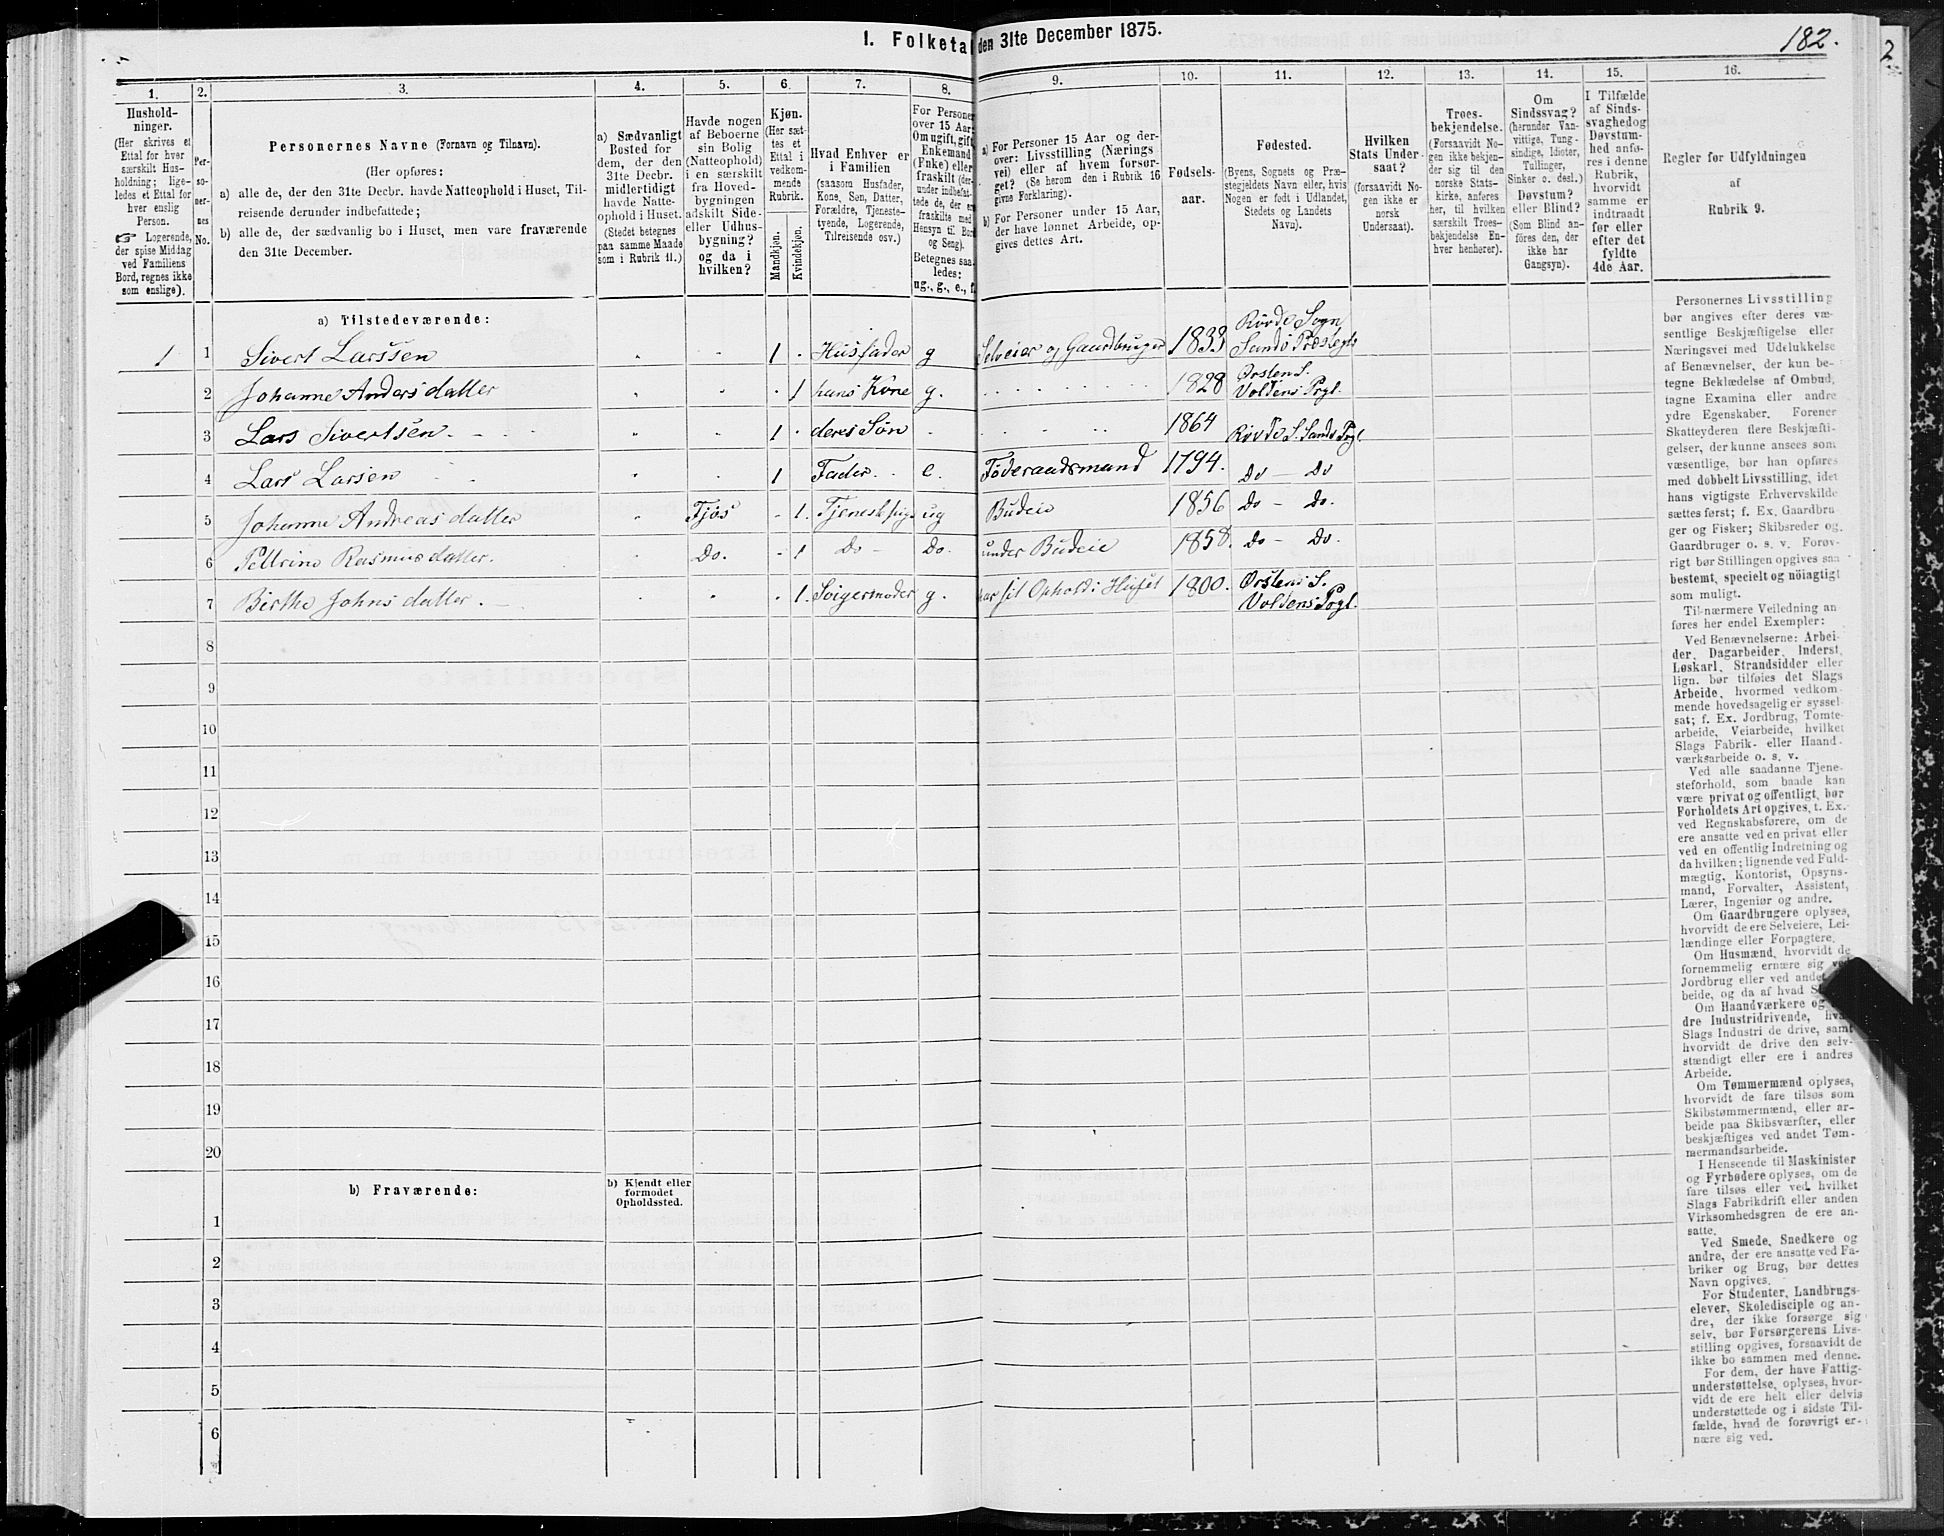 I. Folketa den 31te December 1875.
182.
2
1. 2. 3. 4. 5. 6. 7. 8. 9. 10. 11. 12. 13. 14. 15. 16.
Hushold-
ninger.
(Her skrives et
Ettal for hver
særskilt Hus-
holdning; lige-
ledes et Ettal for
hver enslig
Person.
☞ Logerende,
der spise Middag
ved Familiens
Bord, regnes ikke
som enslige).
Per-
so-
ner-
nes
No.
Personernes Navne (Fornavn og Tilnavn).
(Her opføres:
a) alle de, der den 31te Decbr. havde Natteophold i Huset, Til-
reisende derunder indbefattede;
b) alle de, der sædvanlig bo i Huset, men vare fraværende
den 31te December.
a) Sædvanligt
Bosted for
dem, der den
31te Decbr.
midlertidigt
havde Natte-
ophold i Huset.
(Stedet betegnes
paa samme Maade
som i Rubrik 11.)
Havde nogen
af Beboerne
sin Bolig
(Natteophold)
i en særskilt
fra Hoved-
bygningen
adskilt Side-
eller Udhus-
bygning?
og da i
hvilken?
Kjøn.
(Her sæt-
tes et
Ettal i
vedkom-
mende
Rubrik.
Mandkjøn.
Kvindekjøn.
Hvad Enhver er
i Familien
(saasom Husfader,
Kone, Søn, Datter,
Forældre, Tjeneste-
tyende, Logerende,
Tilreisende osv.)
For Persone
over 15 Aar:
Om ugift, gift,
Enkemand
(Enke) eller
fraskilt (der-
under indbefat-
tede de, der er
fraskilte med
Hensyn til Bord
og Seng).
Betegnes saa-
ledes:
ug., g., e., f.
a) For Personer 15 Aar og der-
over: Livsstilling (Nærings-
vei) eller af hvem forsør-
get? (Se herom den i Rubrik 16
givne Forklaring).
b) For Personer under 15 Aar,
der have lønnet Arbeide, op-
gives dettes Art.
Fødsels-
aar.
Fødested.
(Byens, Sognets og Præ-
stegjeldets Navn eller, hvis
Nogen er født i Udlandet,
Stedets og Landets
Navn).
Hvilken
Stats Under-
saat?
(forsaavidt No-
gen ikke er
norsk
Undersaat).
Troes-
bekjendelse.
(Forsaavidt No-
gen ikke bekjen-
der sig til den
norske Stats-
kirke, anføres
her, til hvilken
særskilt Troes-
bekjendelse En-
hver henhører).
Om
Sindssvag?
(herunder Van-
vittige, Tung-
sindige, Idioter,
Tullinger,
Sinker o. desl.)
Døvstum?
eller Blind?
(Som Blind an-
føres den, der
ikke har
Gangsyn).
I Tilfælde
af Sinds-
svaghed og
Døvstum-
hed anfø-
res i denne
Rubrik,
hvorvidt
samme er
indtraadt
før eller
efter det
fyldte
4de Aar.
Regler før Udfyldningen
af
Rubrik 9.
a) Tilstedeværende:
1 1 Sivert Larssen 1 Husfader g Selveier og Gaardbruger 1833 Røvde Sogn Sands Præstegj
2 Johanne Andersdatter 1 hans Kone g. 1828 Ørsten S. Voldens Prgl.
3 Lars Sivertsen. 1 deres Søn 1864 Røvde S. Sands Prgl.
4 Lars Larsen 1 Fader e. Føderaadsmand 1794. Do Do
5 Johanne Andreasdatter Fjøs 1. Tjenestpige ug Budeie 1856 Do Do.
6 Pettrine Rasmusdatter. Do. 1 Do Do. under Budeie 1858. Do Do.
7 Birthe Johnsdatter. 1. Svigermoder g. har sit Ophold i Huset 1800. Ørstens S. Voldens Prgl.
8
9
10
11
12
13
14
15
16
17
18
19
20
b) Fraværende:
b) Kjendt eller
formodet
Opholdssted.
1
2
3
4
5
6
Personernes Livsstilling
bør angives efter deres væ-
sentlige Beskjæftigelse eller
Næringsvei med Udelukkelse
af Benævnelser, der kun be-
tegne Beklædelse af Ombud,
tagne Examina eller andre
ydre Egenskaber. Forener
Skatteyderen flere Beskjæfti-
gelser, der kunne ansees som
væsentlige, bør han opføres
med dobbelt Livsstilling, idet
hans vigtigste Erhvervskilde
sættes først; f. Ex. Gaardbru
ger og Fisker; Skibsreder og
Gaardbruger o. s. v. Forøv-
rigt bør Stillingen opgives saa
bestemt, specielt og nöiagtigt
som muligt.
Til nærmere Veiledning an
føres her endel Exempler:
Ved Benævnelserne: Arbei-
der, Dagarbeider, Inderst,
Løskarl, Strandsidder eller
lign. bør tilføies det Slags
Arbeide, hvormed vedkom-
mende hovedsagelig er syssel-
sat; f. Ex. Jordbrug, Tomte-
arbeide, Veiarbeide, hvilket
Slags Fabrik- eller Haand-
værksarbeide o. s. v.
Ved alle saadanne Tjene-
steforhold, som baade kan
være privat og offentligt, bør
Forholdets Art opgives, t. Ex.
ved Regnskabsførere, om de
ere ansatte ved en privat eller
ved en offentlig Indretning og
da hvilken; lignende ved Fuld-
mægtig, Kontorist, Opsyns-
mand, Forvalter, Assistent,
Lærer, Ingeniør og andre.
Om Gaardbrugere oplyses,
hvorvidt de ere Selveiere, Lei-
lændinge eller Forpagtere.
Om Husmænd, hvorvidt de
fornemmelig ernære sig ved
Jordbrug eller ved andet
beide, og da af hvad S
Om Haandværkere og
dre Industridrivende,
Slags Industri de drive, samt
hvorvidt de drive den selv-
stændigt eller ere i andres
Arbeide.
Om Tømmermænd oplyses,
hvorvidt de fare tilsøs som
Skibstømmermænd, eller ar-
beide paa Skibsværfter, eller
beskjæftiges ved andet Tøm-
mermandsarbeide.
I Henseende til Maskinister
og Fyrbødere oplyses, om de
fare tilsøs eller ved hvilket
Slags Fabrikdrift eller anden
Virksomhedsgren de ere an-
satte.
Ved Smede, Snedkere og
andre, der ere ansatte ved Fa-
briker og Brug, bør dettes
Navn opgives.
For Studenter, Landbrugs-
elever, Skoledisciple og an-
dre, der ikke forsørge sig
selv, bør Forsørgerens Livs-
stilling opgives, forsaavidt de
ikke bo sammen med denne.
For dem, der have Fattig-
understøttelse, oplyses, hvor-
vidt de ere helt eller delvis
understøttede og i sidste Til-
fælde, hvad de forøvrigt er-
nære sig ved.